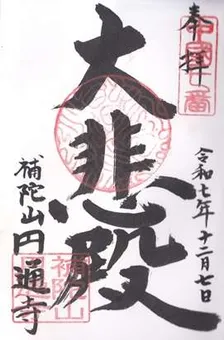 奉拝
令和七年十二月七日
大悲殿
補陀山円通寺
補陀山